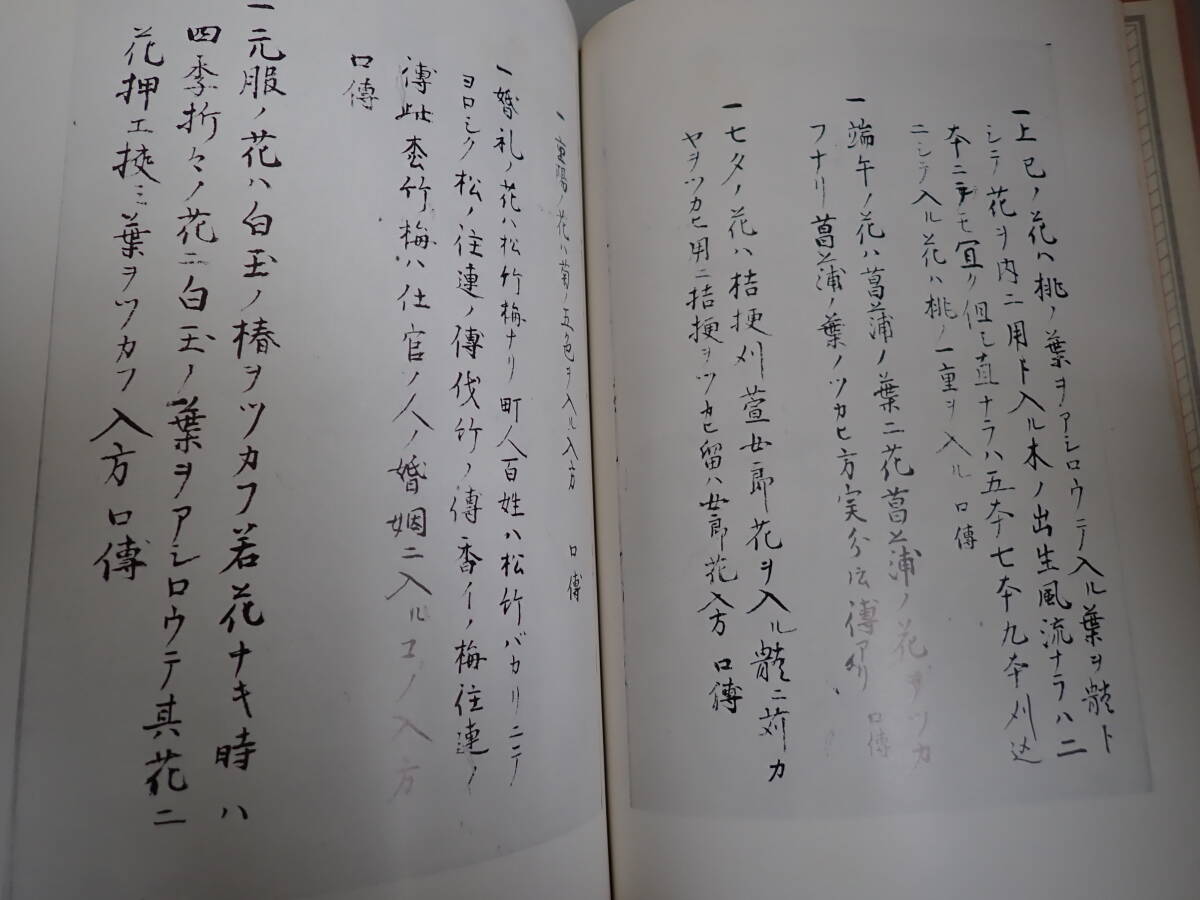 一上巳ノ花ハ桃ノ葉ヲアシロウテ入ル葉ヲ體ト
シテ花ヲ内ニ用ト入ル木ノ出生風流ナラハ二
本ニテモ宜ク但シ直ナラハ五本七本九本刈込
ニシテ入ル花ハ桃ノ一重ヲ入ル 口傳
一端午ノ花ハ菖蒲ノ葉ニ花菖蒲ノ花ヲツカ
フナリ菖蒲ノ葉ノツカヒ方実分ケ傳アリ 口傳
一七夕ノ花ハ桔梗刈萱女郎花ヲ入ル體ニ苅カ
ヤヲツカヒ用ニ桔梗ヲツカヒ留ハ女郎花入方 口傳
一重陽ノ花ハ菊ノ五色ヲ入ル入方 口傳
一婚礼ノ花ハ松竹梅ナリ町人百姓ハ松竹バカリニテ
ヨロシク松ノ住連ノ傳伐竹ノ傳香イノ梅住連ノ
傳此松竹梅ハ仕官ノ人ノ婚姻ニ入ルコノ入方
口傳
一元服ノ花ハ白玉ノ椿ヲツカフ若花ナキ時ハ
四季折々ノ花ニ白玉ノ葉ヲアシロウテ其花ニ
花押エ挾ミ葉ヲツカフ入方 口傳